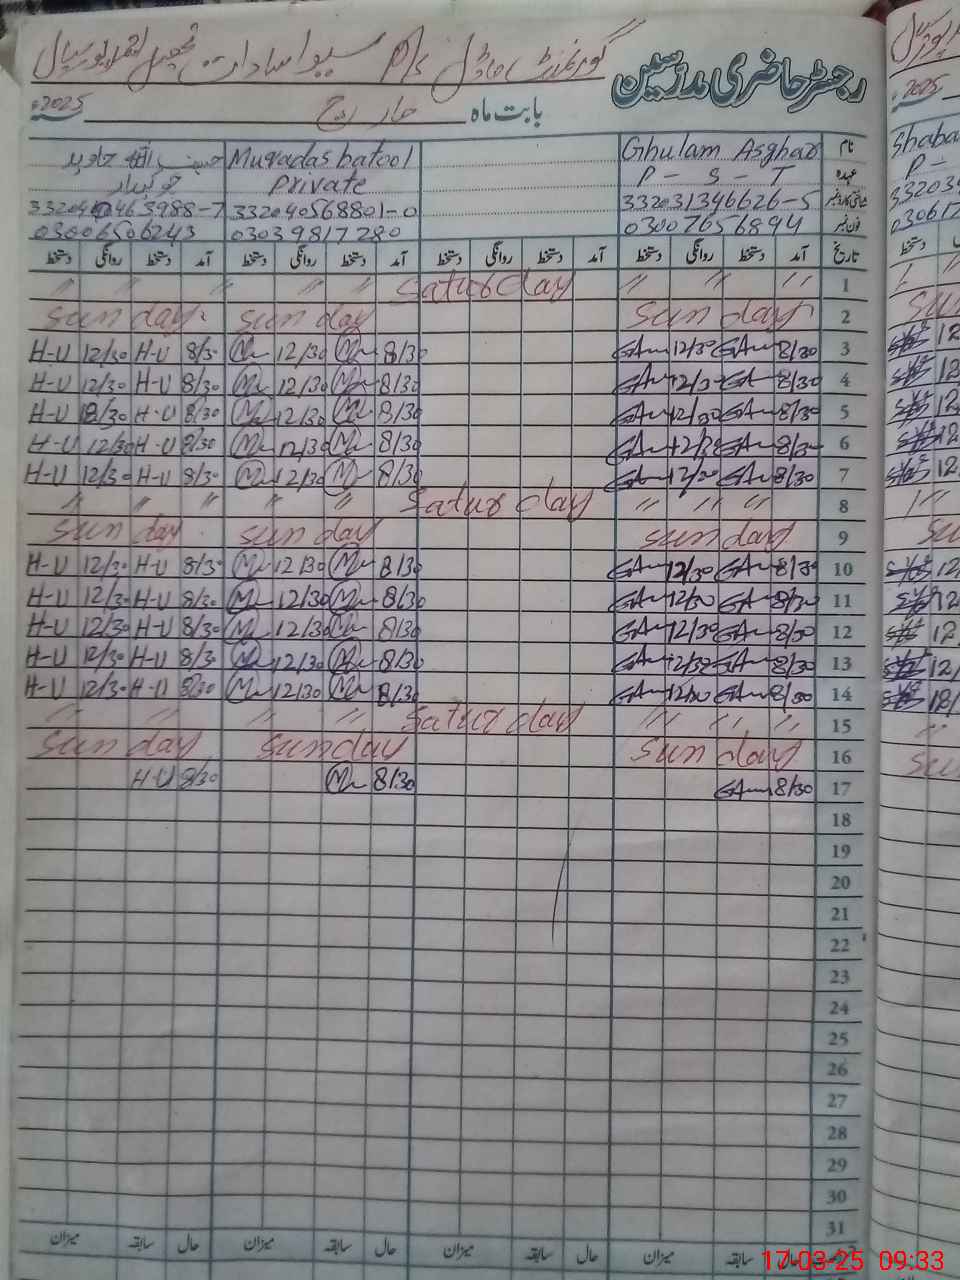 گورنمنٹ ماڈل P/s سیوا سادات تحصیل
رجسٹر حاضری مدرسین
بابت ماہ مارچ 2025ء
نام Ghulam Asghar Muqadas batool
عہدہ P - S - T Private چوکیدار
شناختی کارڈ نمبر 332031346626-5 332040568801-0
فون نمبر 03007656894 03039817280 03006506243
تاریخ آمد دستخط روانگی دستخط آمد دستخط روانگی دستخط آمد دستخط روانگی دستخط آمد دستخط روانگی دستخط
1 〃 〃 〃 Saturday 〃 〃 〃 〃 〃
2 Sunday Sunday Sunday
3 8/30 GA 12/30 GA 8/30 M 12/30 M 8/30 H-U 12/30 H-U
4 8/30 GA 12/30 GA 8/30 M 12/30 M 8/30 H-U 12/30 H-U
5 8/30 GA 12/30 GA 8/30 M 12/30 M 8/30 H-U 12/30 H-U
6 8/30 GA 12/30 GA 8/30 M 12/30 M 8/30 H-U 12/30 H-U
7 8/30 GA 12/30 GA 8/30 M 12/30 M 8/30 H-U 12/30 H-U
8 〃 〃 〃 Saturday 〃 〃 〃 〃 〃
9 Sunday Sunday Sunday
10 8/30 GA 12/30 GA 8/30 M 12/30 M 8/30 H-U 12/30 H-U
11 8/30 GA 12/30 GA 8/30 M 12/30 M 8/30 H-U 12/30 H-U
12 8/30 GA 12/30 GA 8/30 M 12/30 M 8/30 H-U 12/30 H-U
13 8/30 GA 12/30 GA 8/30 M 12/30 M 8/30 H-U 12/30 H-U
14 8/30 GA 12/30 GA 8/30 M 12/30 M 8/30 H-U 12/30 H-U
15 〃 〃 〃 Saturday 〃 〃 〃 〃
16 Sunday Sunday Sunday
17 8/30 GA 8/30 M 8/30 H-U
18
19
20
21
22
23
24
25
26
27
28
29
30
31
حال سابقہ میزان حال سابقہ میزان حال سابقہ میزان حال سابقہ میزان
17-03-25 09:33